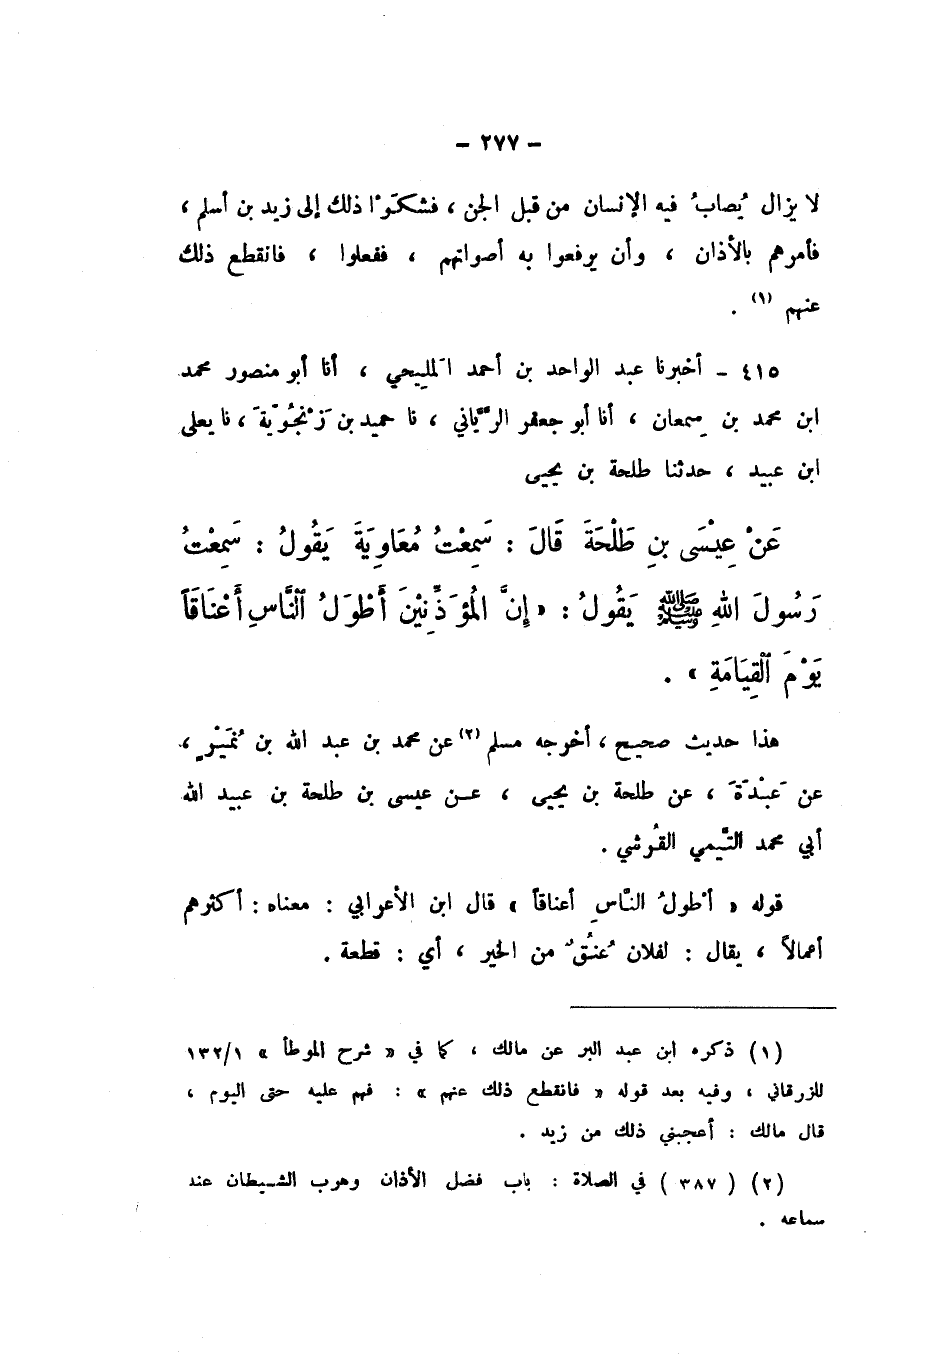 - ٢٧٧ -
لا يزال يُصابُ فيه الإنسان من قبل الجن ، فشكَوْا ذلك إلى زيد بن أسلم ،
فأمرهم بالأذان ، وأن يرفعوا به أصواتهم ، ففعلوا ، فانقطع ذلك
عنهم (١) .
٤١٥ - أخبرنا عبد الواحد بن أحمد المَليحي ، أنا أبو منصور محمد
ابن محمد بن سِمعان ، أنا أبو جعفر الرَّيَّاني ، نا حميد بن زَنْجُوْيَةَ ، نا يعلى
ابن عبيد ، حدثنا طلحة بن يحيى
عَنْ عِيْسَى بنِ طَلْحَةَ قَالَ : سَمِعْتُ مُعَاوِيَةَ يَقُولُ : سَمِعْتُ
رَسُولَ اللهِ ﷺ يَقُولُ : « إِنَّ الْمُؤَذِّنِيْنَ أَطْوَلُ ٱلنَّاسِ أَعْنَاقَاً
يَوْمَ ٱلْقِيَامَةِ » .
هذا حديث صحيح ، أخرجه مسلم (٢) عن محمد بن عبد الله بن نُمَيْرٍ ،
عن عَبْدَةَ ، عن طلحة بن يحيى ، عن عيسى بن طلحة بن عبيد الله
أبي محمد التَّيمي القُرشي .
قوله « أطولُ النَّاسِ أعناقاً » قال ابن الأعرابي : معناه : أكثرهم
أعمالاً ، يقال : لفلان عُنُقٌ من الخير ، أي : قطعة .
(١) ذكره ابن عبد البر عن مالك ، كما في « شرح الموطأ » ١٣٢/١
للزرقاني ، وفيه بعد قوله « فانقطع ذلك عنهم » : فهم عليه حتى اليوم ،
قال مالك : أعجبني ذلك من زيد .
(٢) ( ٣٨٧ ) في الصلاة : باب فضل الأذان وهرب الشيطان عند
سماعه .